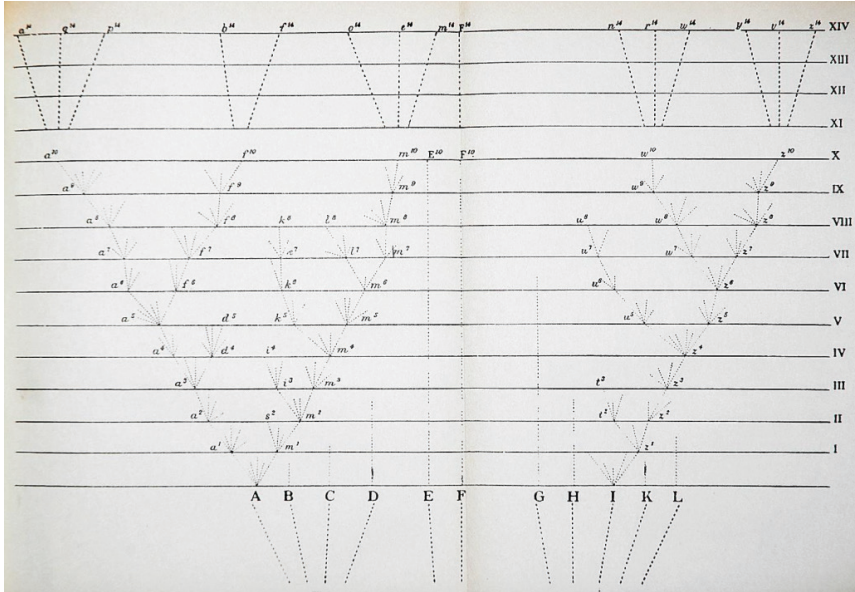 a¹⁴ q¹⁴ p¹⁴ b¹⁴ f¹⁴ o¹⁴ e¹⁴ m¹⁴ F¹⁴ n¹⁴ r¹⁴ w¹⁴ y¹⁴ v¹⁴ z¹⁴ XIV
XIII
XII
XI
a¹⁰ f¹⁰ m¹⁰ E¹⁰ F¹⁰ w¹⁰ z¹⁰ X
a⁹ f⁹ m⁹ w⁹ z⁹ IX
a⁸ f⁸ k⁸ l⁸ m⁸ u⁸ w⁸ z⁸ VIII
a⁷ f⁷ l⁷ m⁷ u⁷ w⁷ z⁷ VII
a⁶ f⁶ k⁶ m⁶ u⁶ z⁶ VI
a⁵ d⁵ k⁵ m⁵ u⁵ z⁵ V
d⁴ i⁴ m⁴ z⁴ IV
a³ i³ m³ t³ z³ III
a² s² m² t² z² II
a¹ m¹ z¹ I
A B C D E F G H I K L